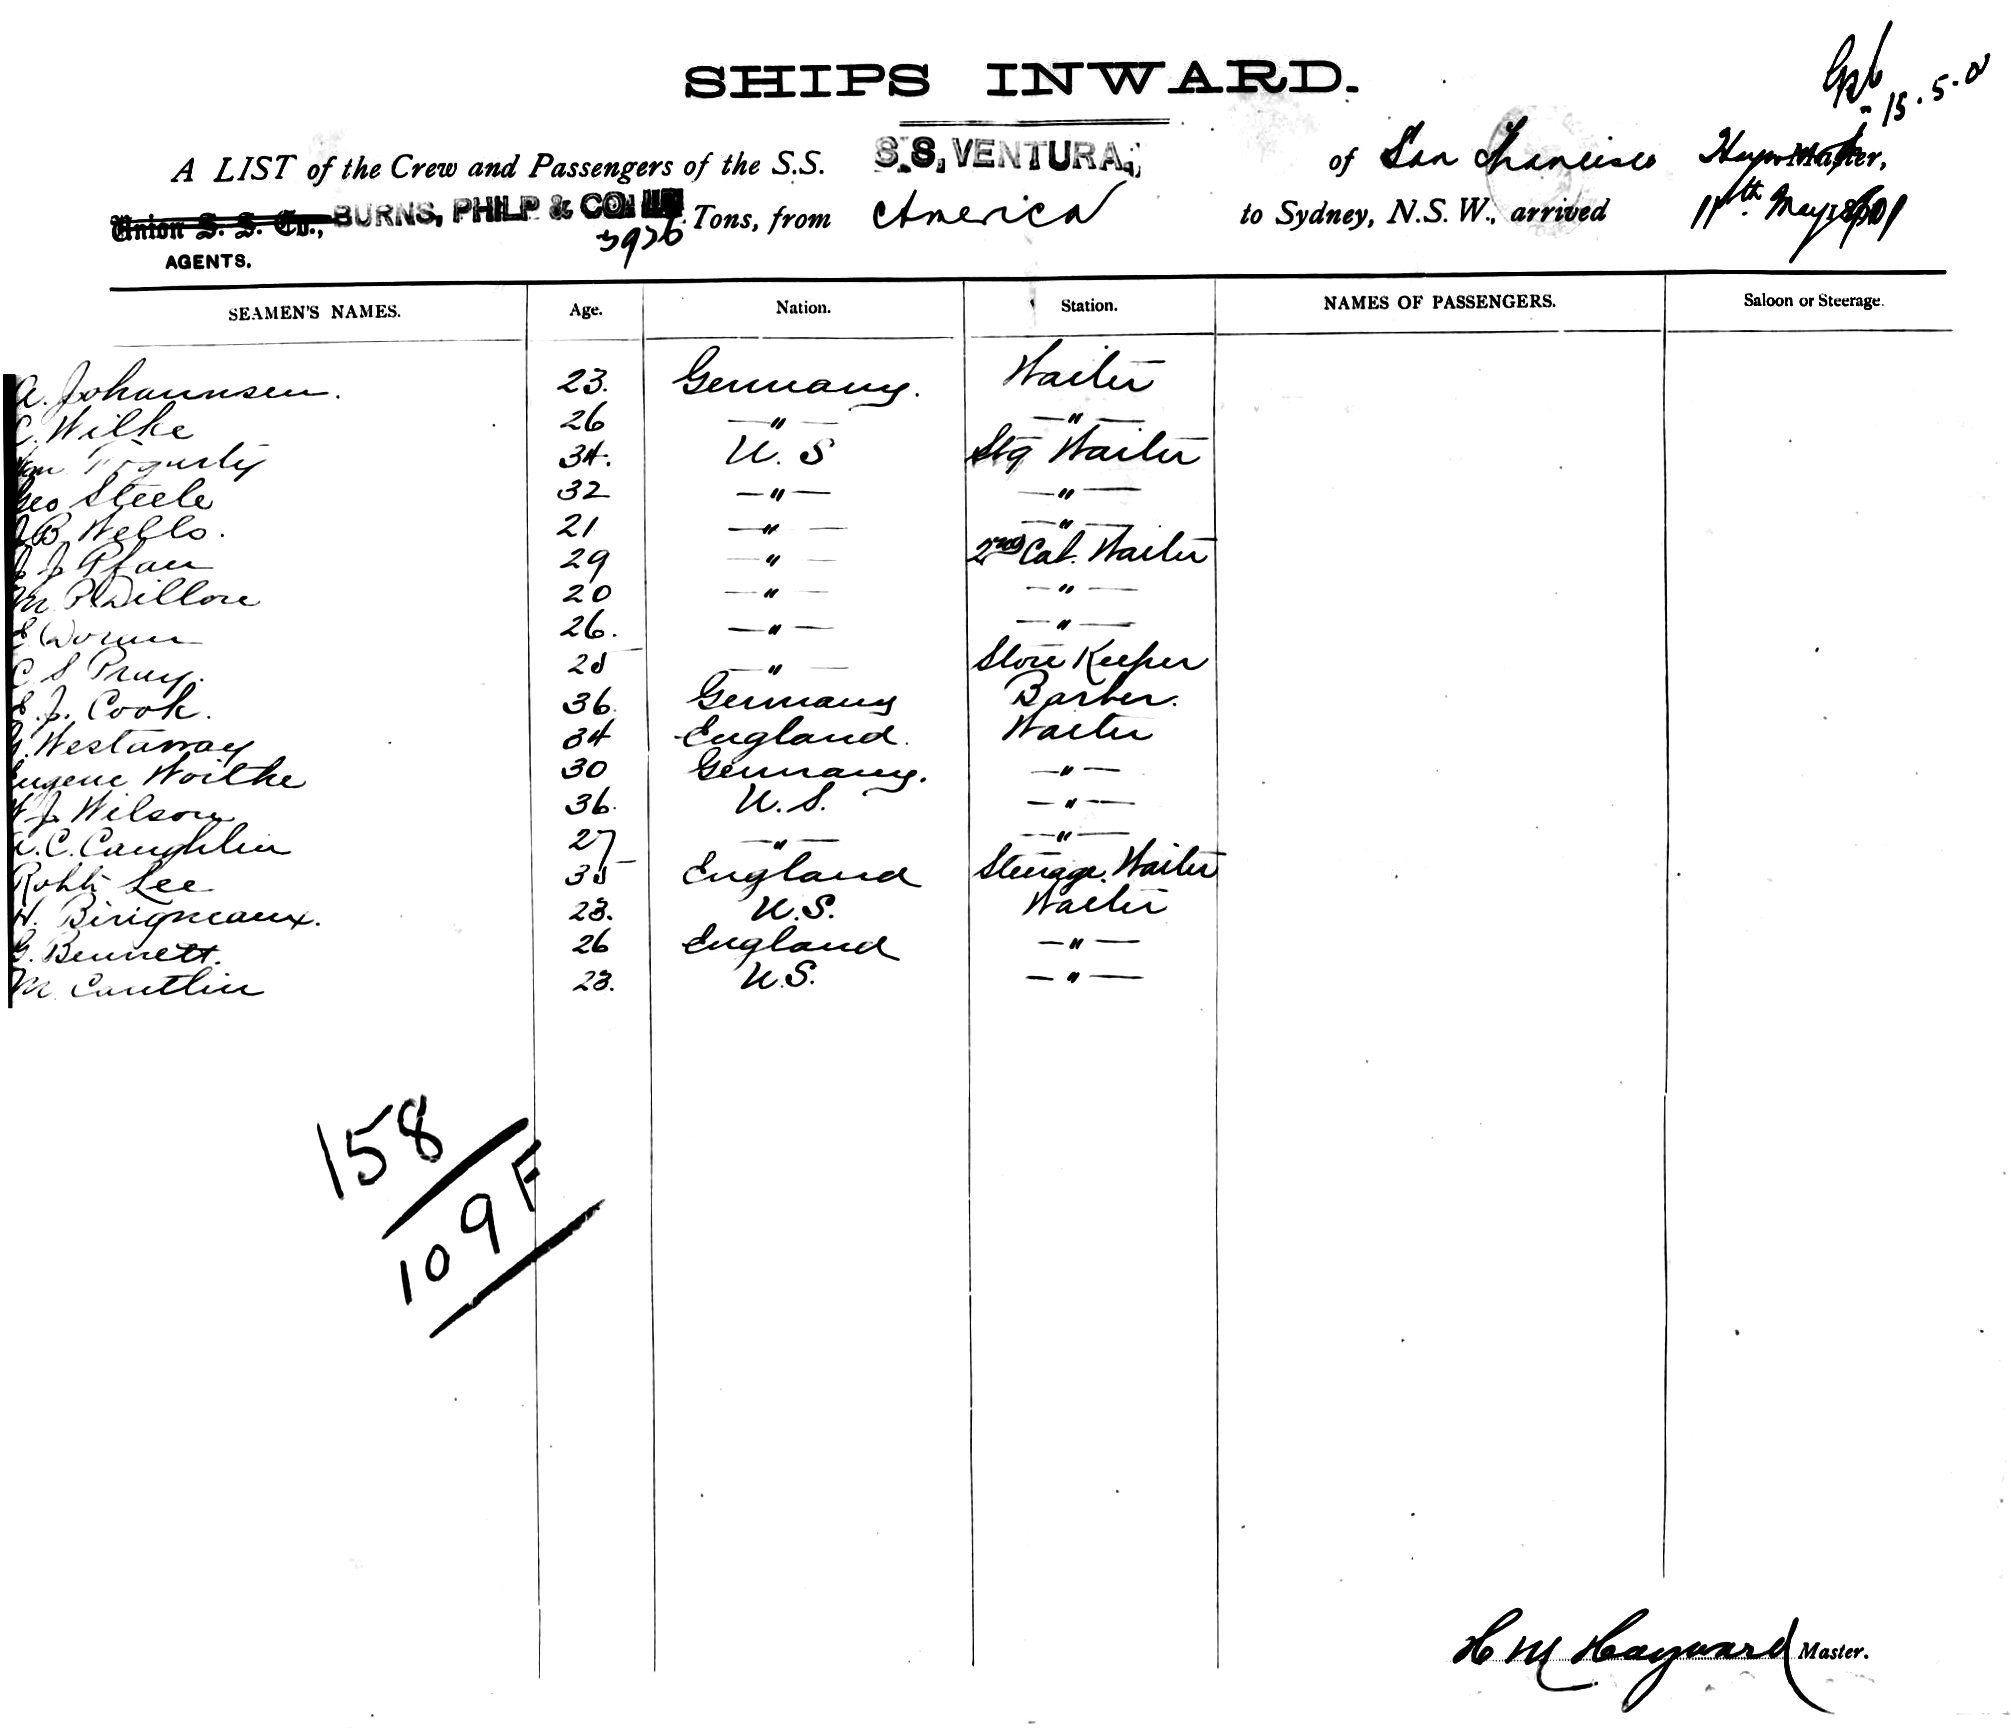 15.5.0
SHIPS INWARD.
A LIST of the Crew and Passengers of the S.S. S.S. VENTURA, of San Francisco Master,
Union S. S. Co., BURNS, PHILP & CO. Tons, from America to Sydney, N.S.W., arrived 11th May 1901
AGENTS. 5926
SEAMEN'S NAMES. Age. Nation. Station. NAMES OF PASSENGERS. Saloon or Steerage.
A. Johannsen. 23. Germany. Waiter
C. Wilke 26 —"— —"—
Fogurty 34. U.S Stg Waiter
Geo Steele 32 —"— —"—
J B Wells. 21 —"— —"—
J Pfau 29 —"— 2nd Cab. Waiter
M P Dillon 20 —"— —"—
E 26. —"— —"—
C S Pray. 25 —"— Store Keeper
E. J. Cook. 36. Germany Barber.
Westaway 34 England. Waiter
Eugene Woithe 30 Germany. —"—
J. Wilson 36. U.S. —"—
A. C. Caughlin 27 —"— —"—
Robt Lee 35 England Steerage. Waiter
H. Birigneaux. 23. U.S. Waiter
G. Bennett. 26 England —"—
M. Cantlin 23. U.S. —"—
158
109 F
H M Hayward Master.